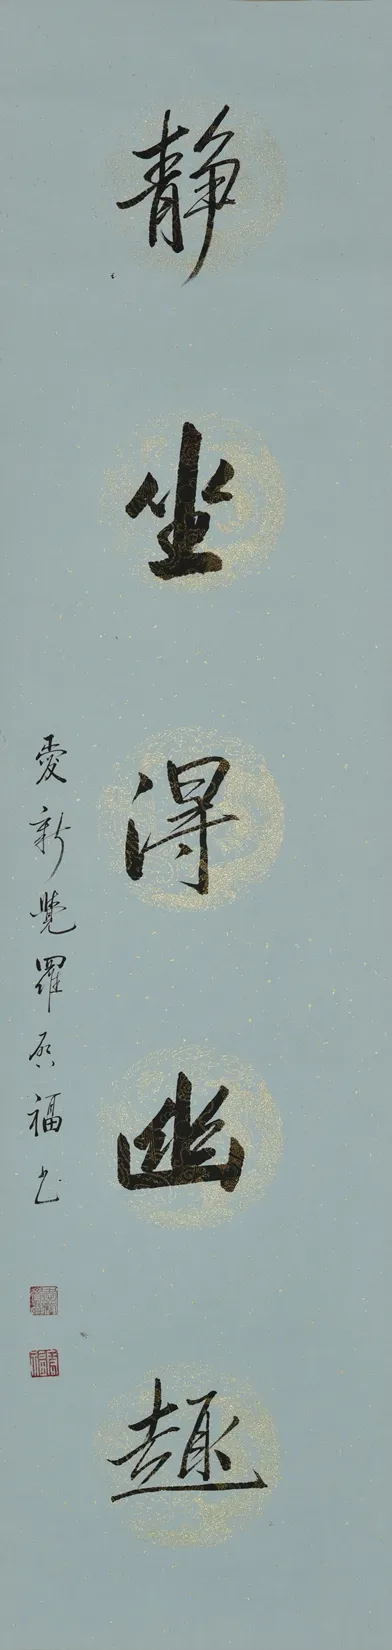 静坐得幽趣
愛新覺羅啟福书